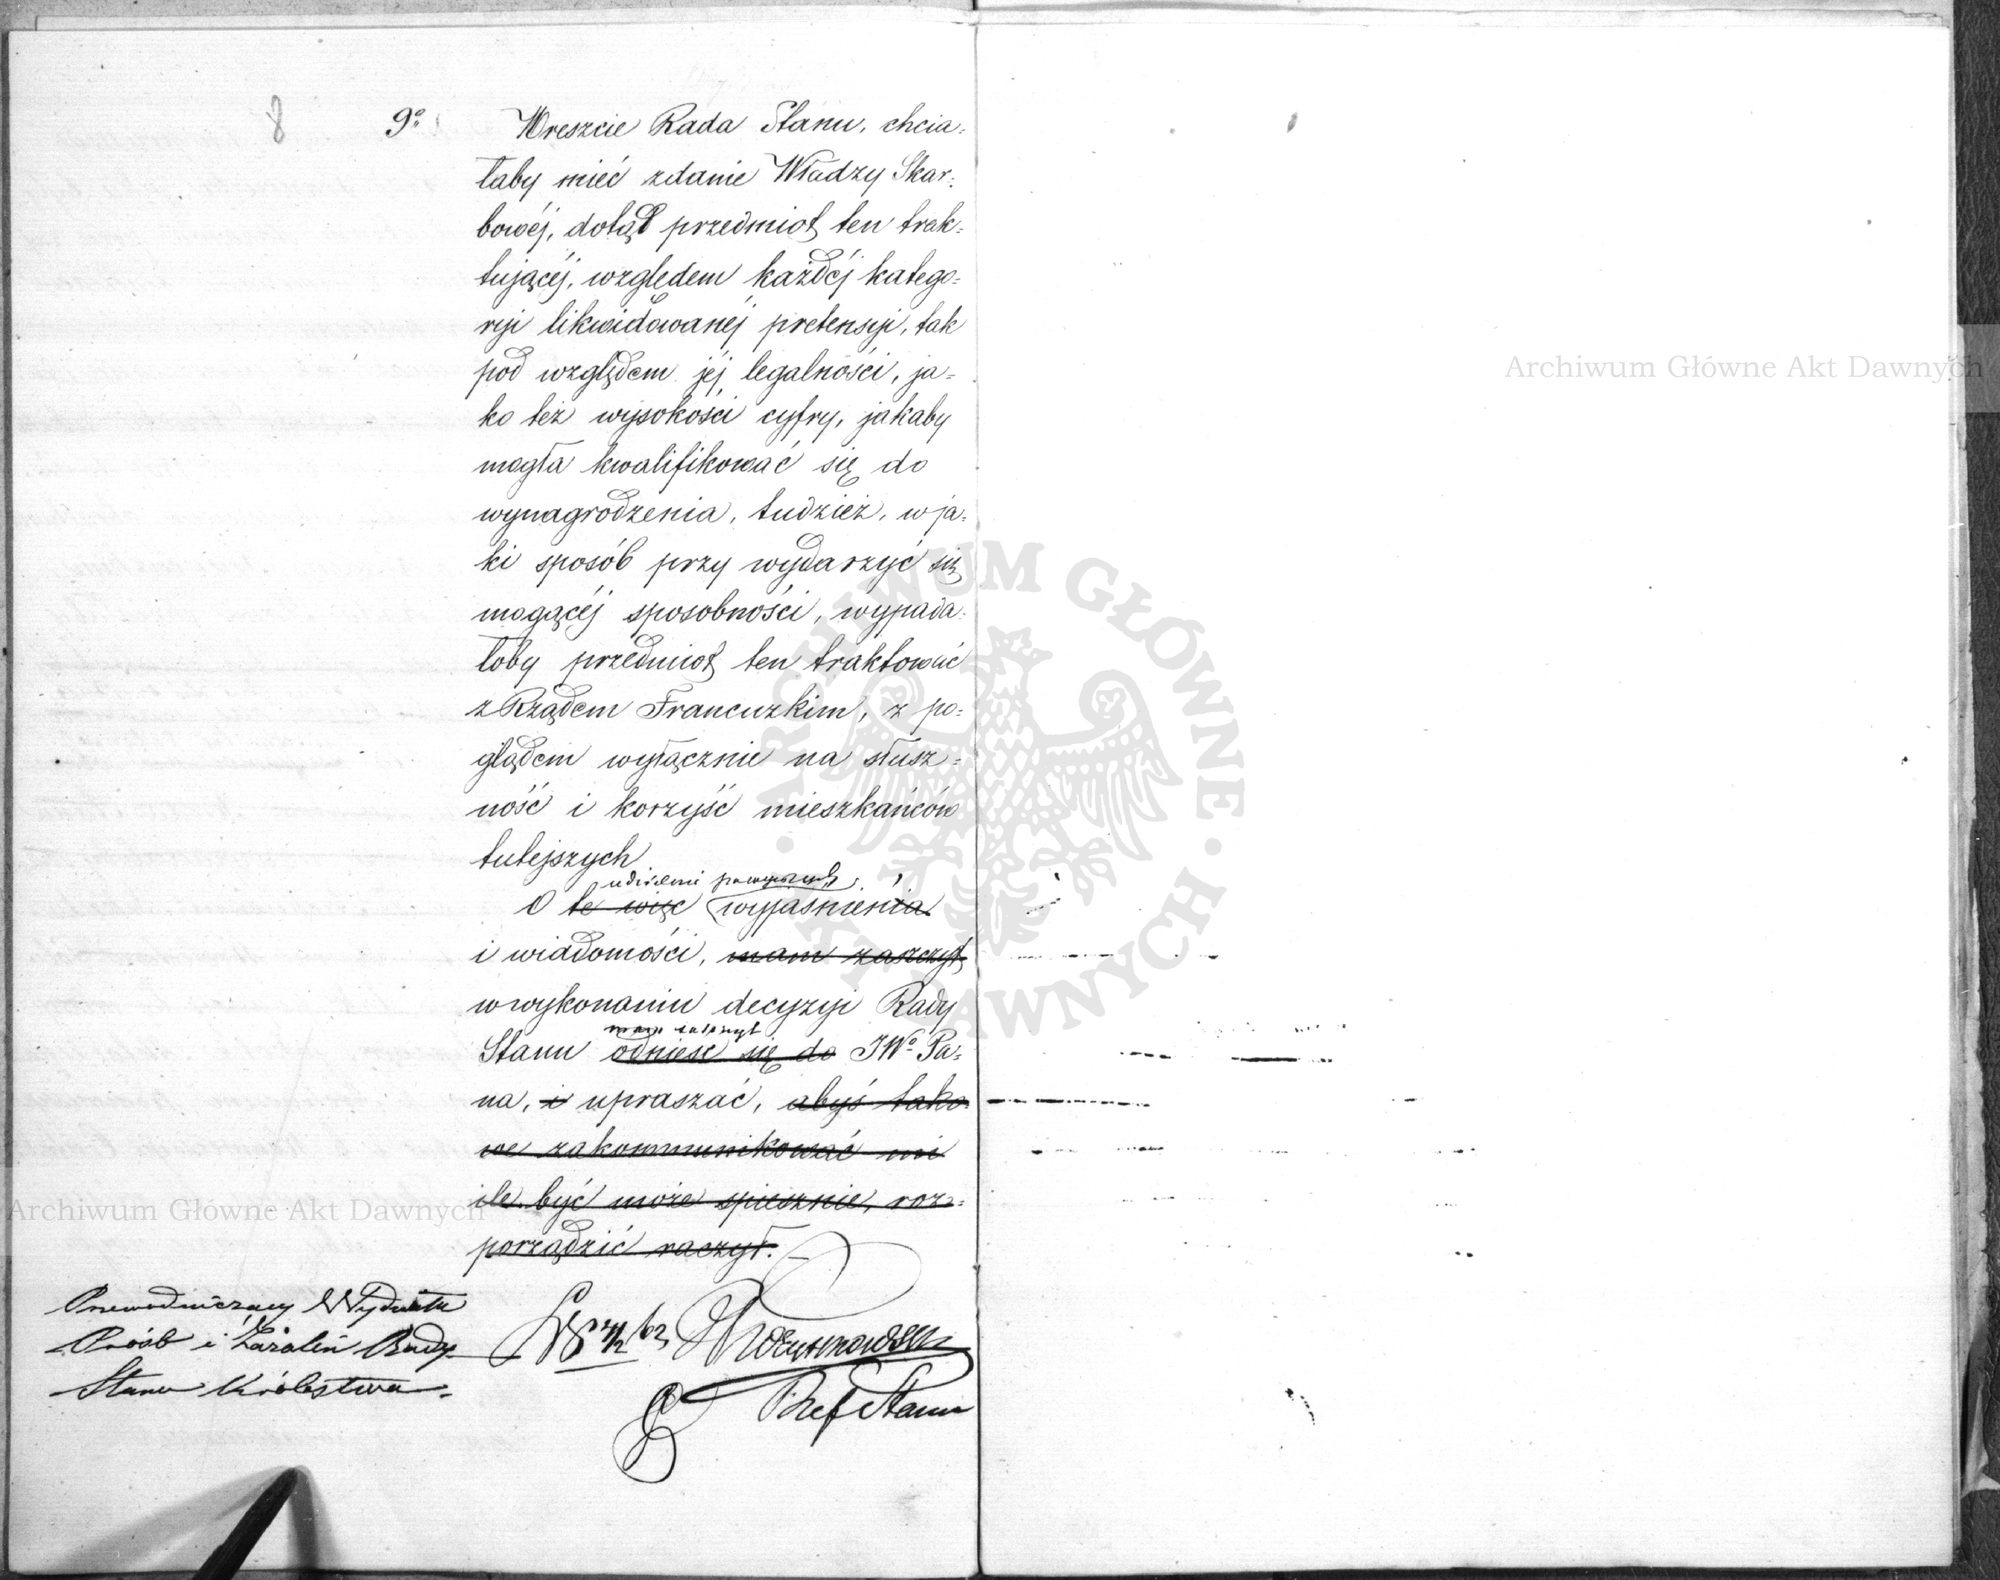 8
9º Wreszcie Rada Stanu, chcia=
łaby mieć zdanie Władzy Skar=
bowéj, dotąd przedmiot ten trak=
tującéj, względem każdéj katego=
ryi likwidowanéj pretensyi, tak
pod względem jéj legalności, ja=
ko też wysokości cyfry, jakaby
mogła kwalifikować się do
wynagrodzenia, tudzież, w ja=
ki sposób przy wydarzyć się
mogącéj sposobności, wypada=
łoby przedmiot ten traktować
z Rządem Francuzkim, z po=
glądem wyłącznie na słusz=
ność i korzyść mieszkańców
tutejszych
udzielenie powyższych
O te więc wyjaśnienia
i wiadomości, mam zaszczyt
w wykonaniu decyzyi Rady
mam zaszczyt
Stanu odnieść się do JWº Pa=
na, i upraszać, abyś tako
we zakommunikować mi
ile być może spiesznie, roz=
porządzić raczył.
Przewodniczący Wydziału
Próśb i Zażaleń Rady
Stanu Królestwa
Ref Stanu
Archiwum Główne Akt Dawnych
Archiwum Główne Akt Dawnych
ARCHIWUM GŁÓWNE AKT DAWNYCH